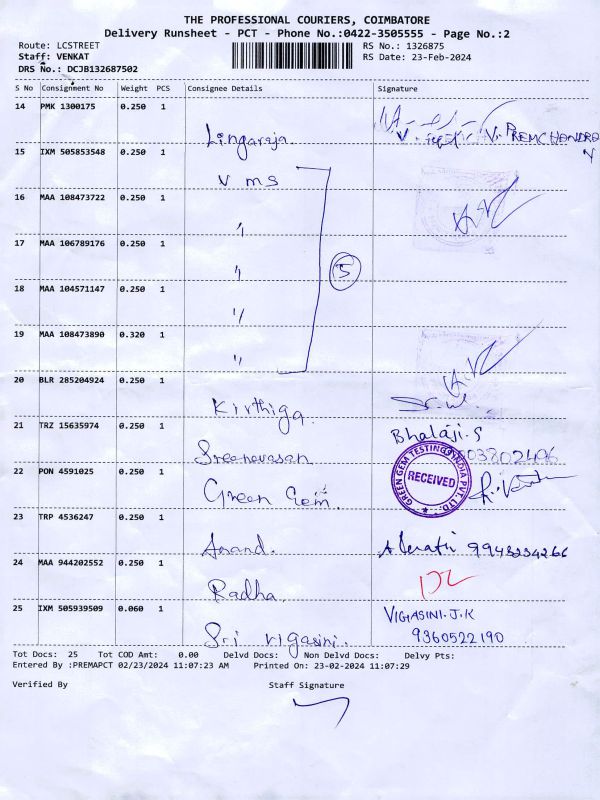 THE PROFESSIONAL COURIERS, COIMBATORE
Delivery Runsheet - PCT - Phone No.:0422-3505555 - Page No.:2
Route: LCSTREET
RS No.: 1326875
Staff: VENKAT
RS Date: 23-Feb-2024
DRS No.: DCJB132687502
S No Consignment No Weight PCS Consignee Details Signature
14 PMK 1300175 0.250 1
Lingaraja. V. PREMCHANDRAN
15 IXM 505853548 0.250 1
V ms
16 MAA 108473722 0.250 1
"
17 MAA 106789176 0.250 1
" 5
18 MAA 104571147 0.250 1
"
19 MAA 108473890 0.320 1
"
20 BLR 285204924 0.250 1
Kirthiga.
21 TRZ 15635974 0.250 1
Bhalaji.S
Sreenevasan
22 PON 4591025 0.250 1
Green Gem.
GREEN GEM TESTING INDIA PVT. LTD.
RECEIVED
23 TRP 4536247 0.250 1
Anand. 9948234266
24 MAA 944202552 0.250 1
Radha
25 IXM 505939509 0.060 1
VIGASINI.J.K
Sri vigasini. 9360522190
Tot Docs: 25 Tot COD Amt: 0.00 Delvd Docs: Non Delvd Docs: Delvy Pts:
Entered By :PREMAPCT 02/23/2024 11:07:23 AM Printed On: 23-02-2024 11:07:29
Verified By Staff Signature